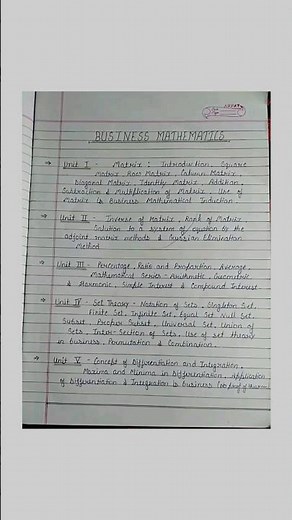 BUSINESS MATHEMATICS
→ Unit I - Matrix : Introduction, Square
Matrix Row Matrix, Column Matrix,
Diagonal Matrix, Identity Matrix, Addition,
Subtraction & Multiplication of Matrix, Use of
Matrix in Business Mathematical Induction.
→ Unit II - Inverse of Matrix, Rank of Matrix
Solution to a system of equation by the
adjoint matrix methods & Guassian Elimination
Method.
→ Unit III - Percentage, Ratio and Proportion, Average,
Mathematical Series - Arithmetic, Geometric
& Harmonic, Simple Interest & Compound Interest
→ Unit IV - Set Theory - Notation of Sets, Singleton Set,
Finite Set, Infinite Set, Equal Set Null Set,
Subset, Proper Subset, Universal Set, Union of
Sets, Inter-Section of Sets, Use of set theory
in business, Permutation & Combination.
→ Unit V - Concept of Differentiation and Integration,
Maxima and Minima in Differentiation, Application
of Differentiation & Integration in Business (No proof of theorems)